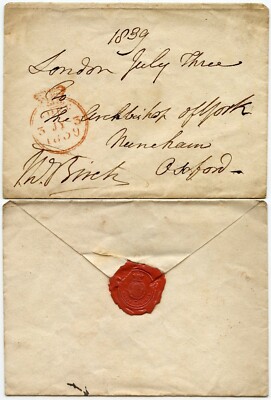 1839
London July Three
To
The Archbishop of York
Nuneham
Oxford
3 JY 3
1839